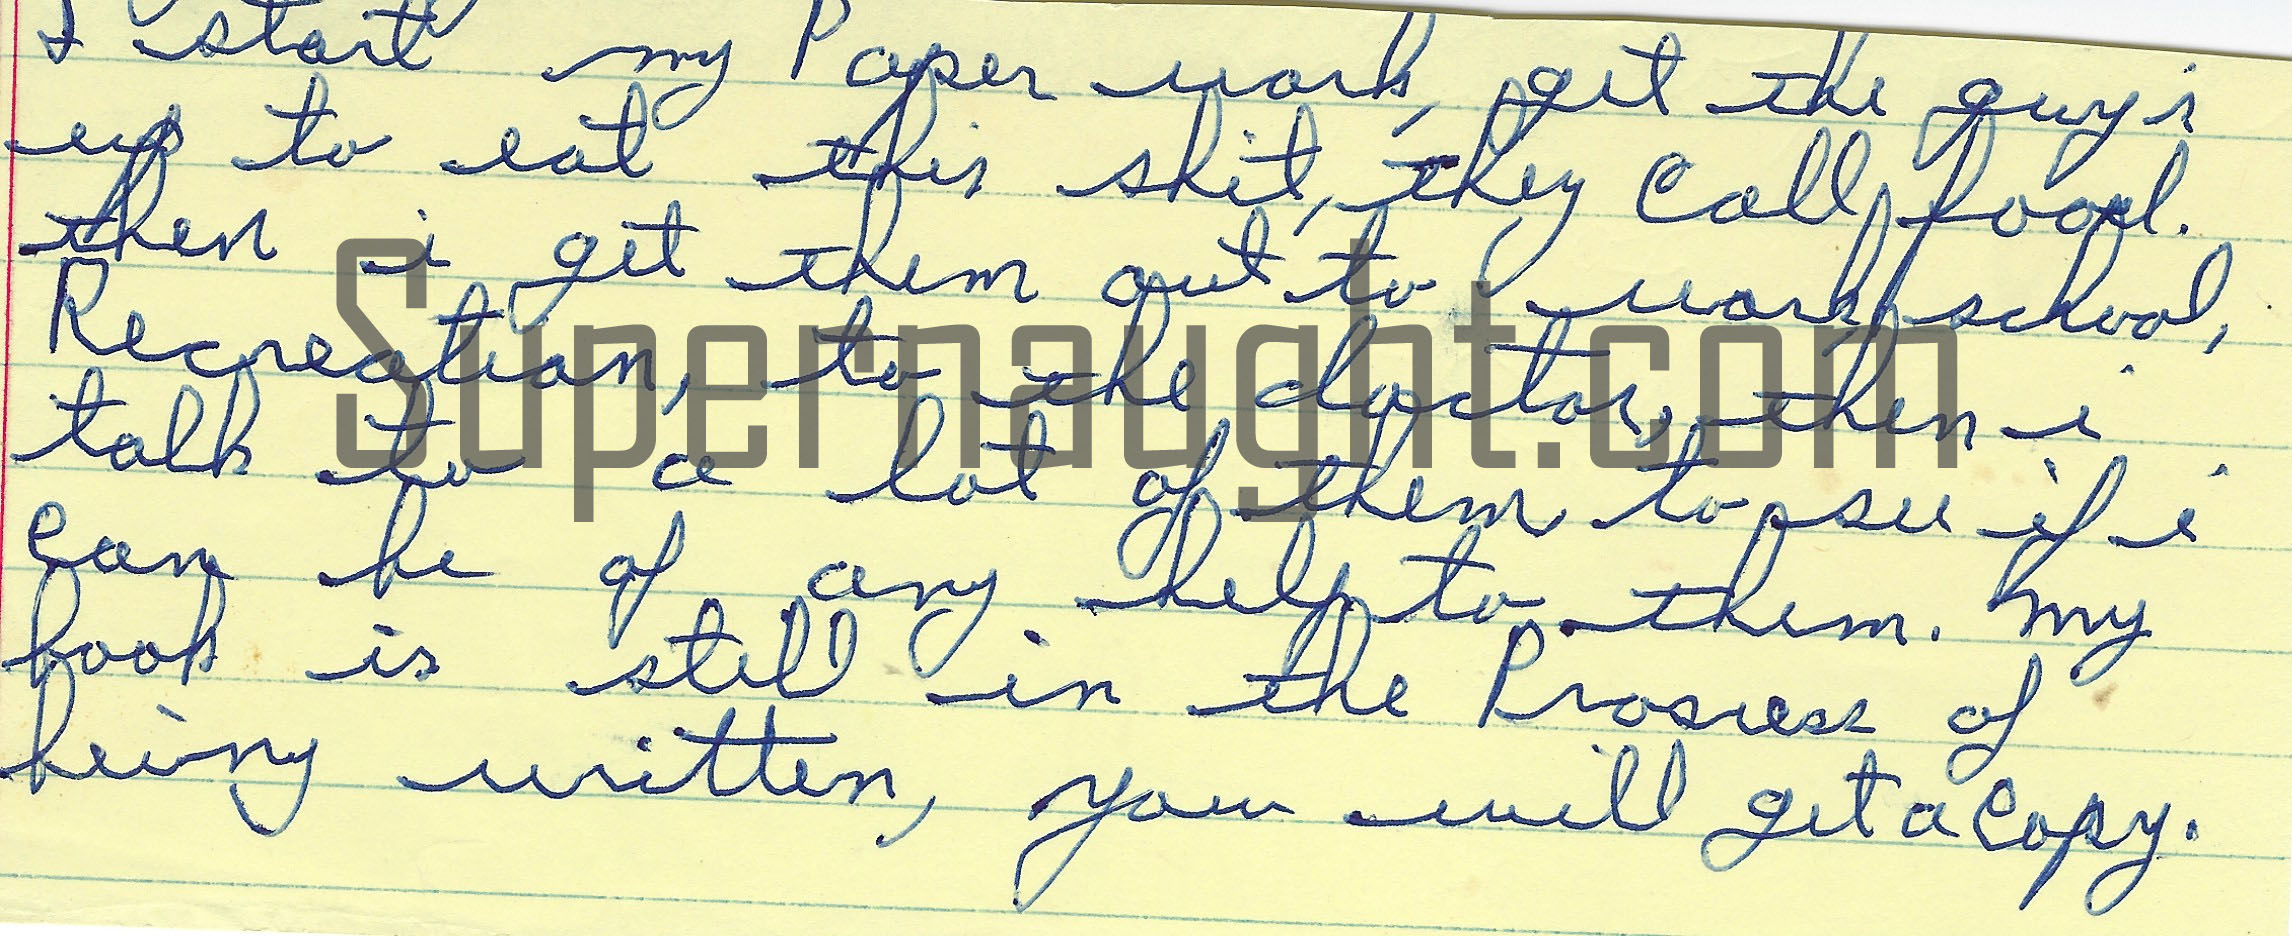 I start my Paper work, get the guy's
up to eat this shit, they Call food.
then i get them out to work, school,
Recreation, to the doctor, then i
talk to a lot of them to see if i
Can be of any help to them. My
book is still in the Prosess of
being written, you will get a Copy.
Supernaught.com